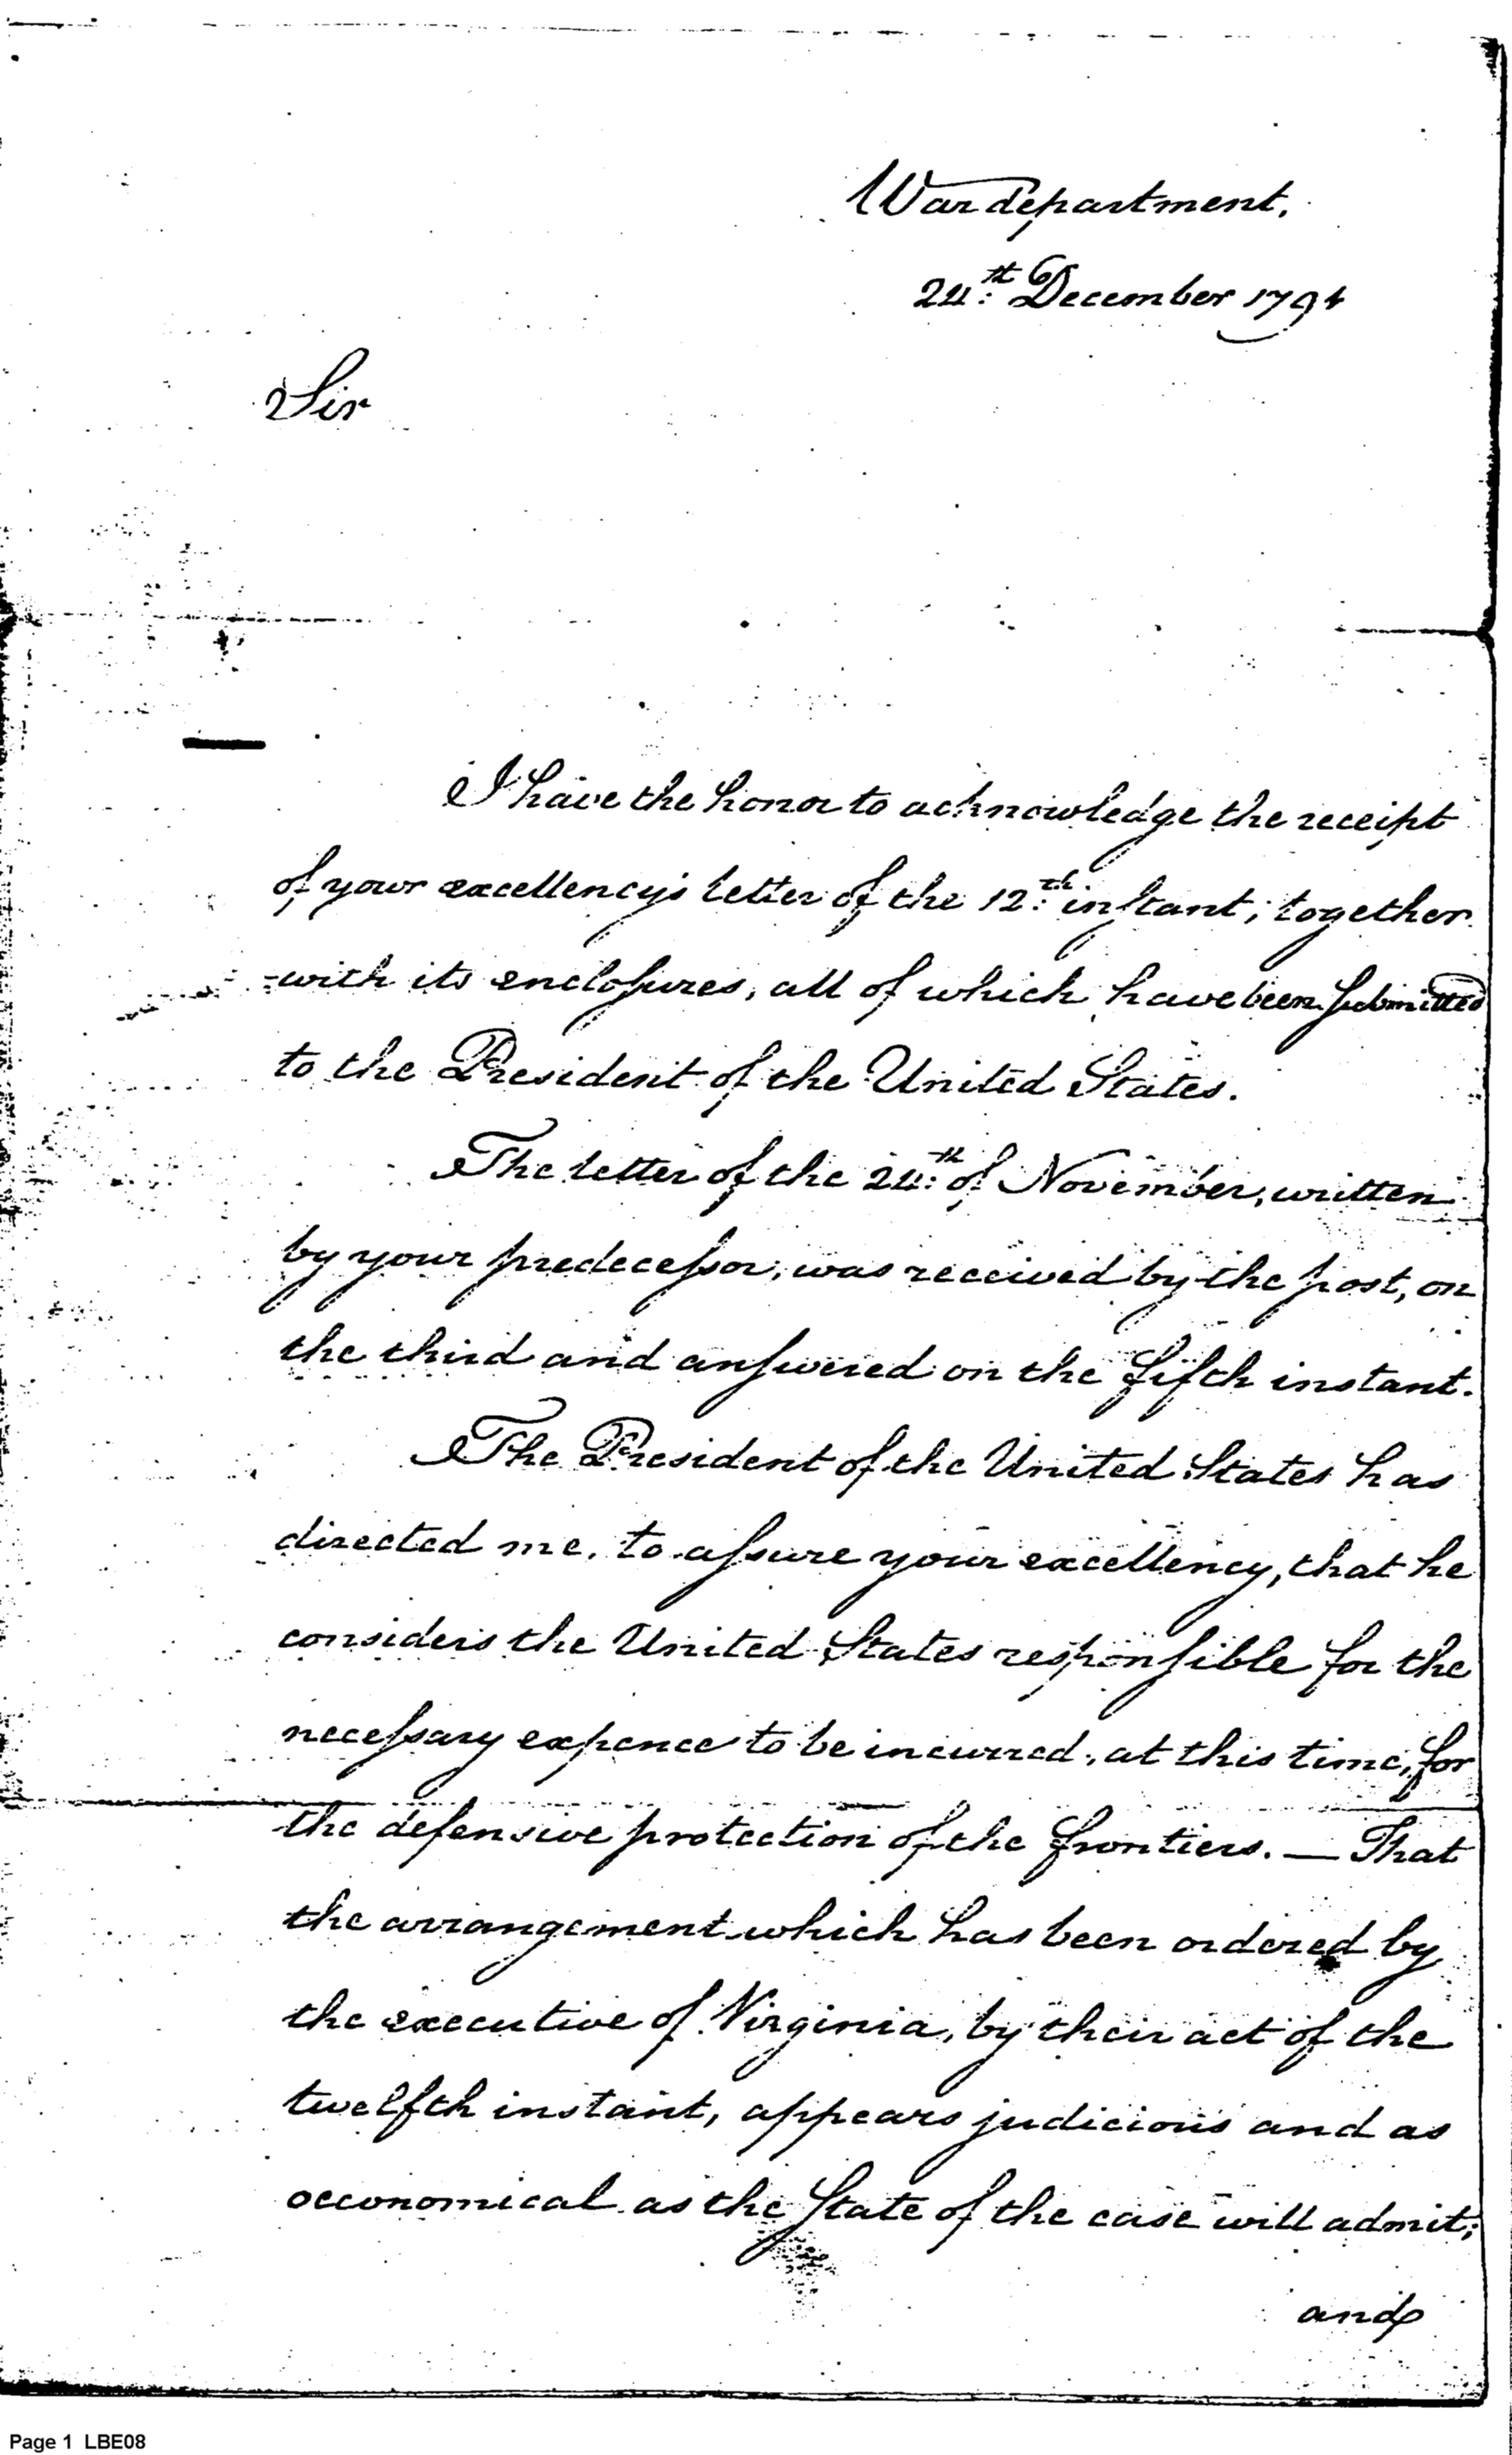 War department,
24th December 1794
Sir
I have the honor to acknowledge the receipt
of your excellency's letter of the 12th instant; together
with its enclosures, all of which have been submitted
to the President of the United States.
The letter of the 24th of November, written
by your predecessor, was received by the post, on
the third and answered on the fifth instant.
The President of the United States has
directed me, to assure your excellency, that he
considers the United States responsible for the
necessary expence to be incurred, at this time, for
the defensive protection of the frontiers. — That
the arrangement which has been ordered by
the executive of Virginia, by their act of the
twelfth instant, appears judicious and as
oeconomical as the State of the case will admit;
and
Page 1 LBE08